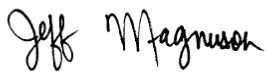 Jeff Magnuson